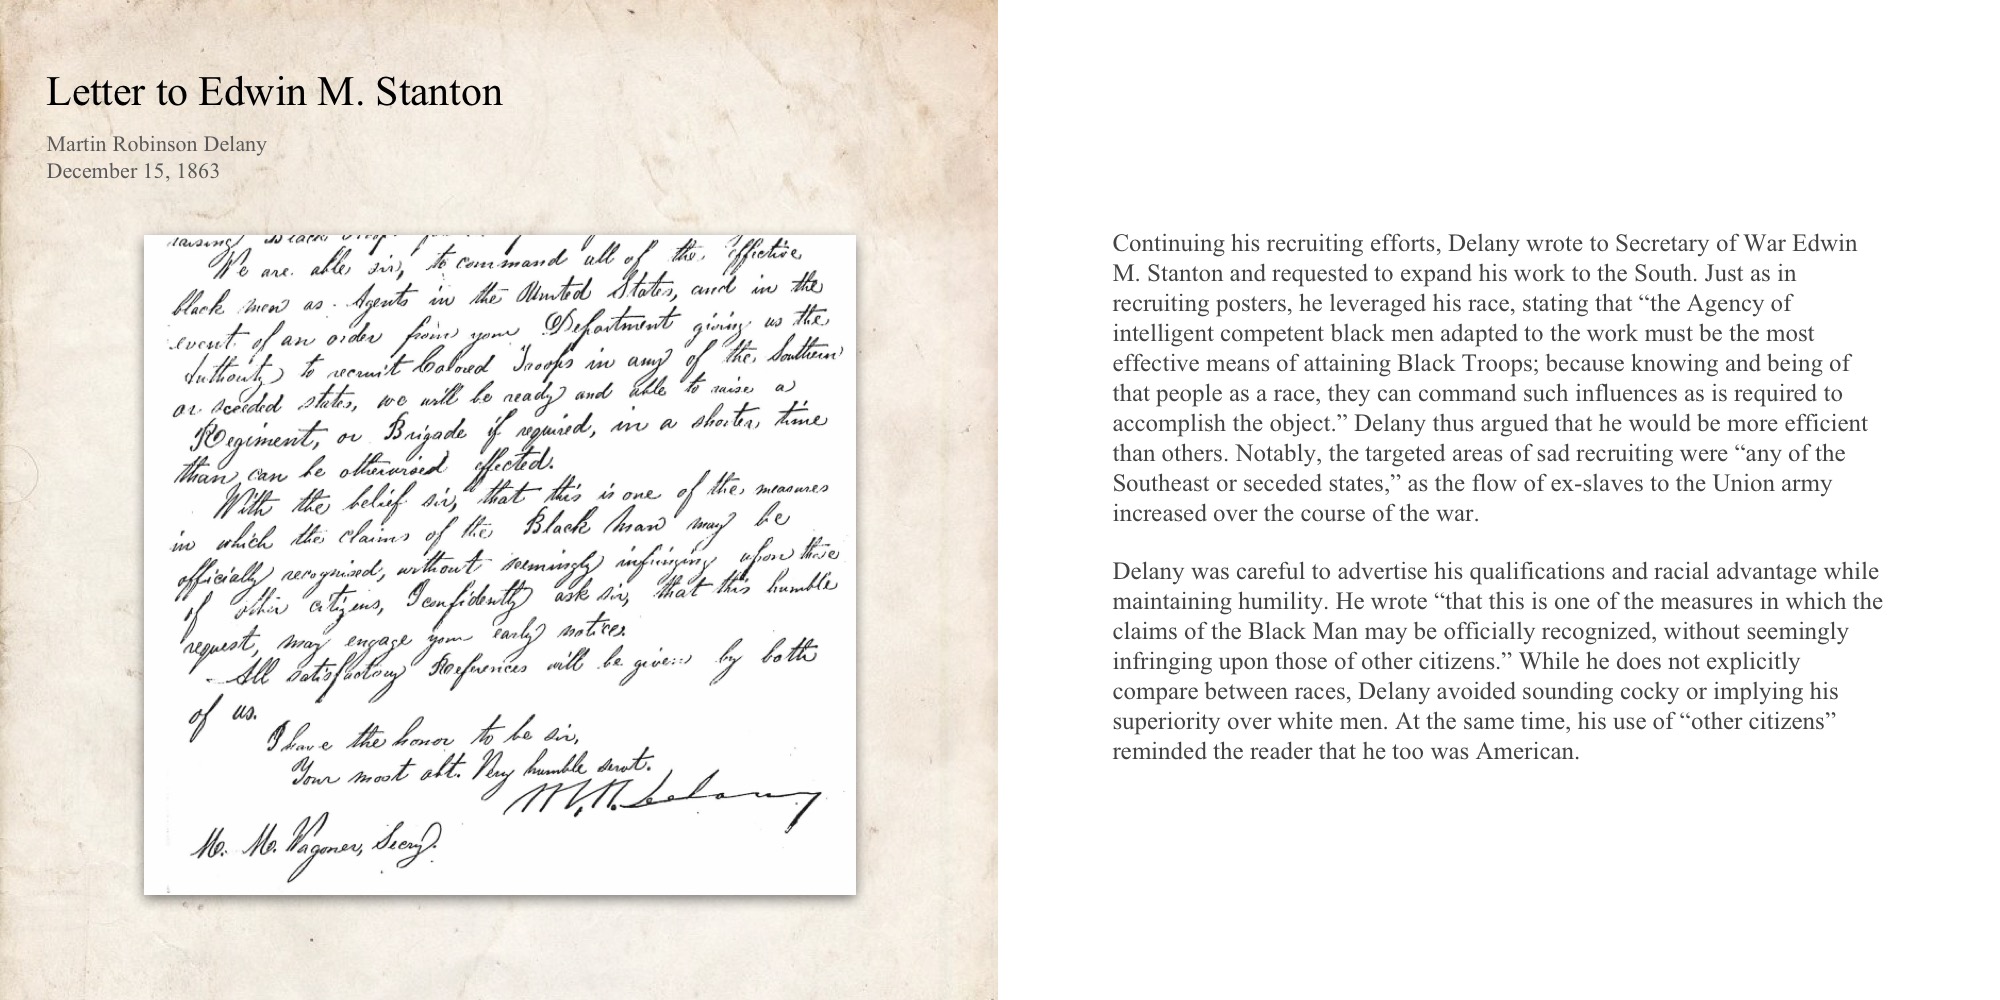 Letter to Edwin M. Stanton
Martin Robinson Delany
December 15, 1863
raising Black Troops
We are able sir, to command all of the effective
black men as Agents in the United States, and in the
event of an order from your Department giving us the
Authority to recruit Colored Troops in any of the Southern
or seceded states, we will be ready and able to raise a
Regiment, or Brigade if required, in a shorter time
than can be otherwised effected.
With the belief sir, that this is one of the measures
in which the claims of the Black Man may be
officially recognised, without seemingly infringing upon those
of other citizens, I confidently ask sir, that this humble
request, may engage your early notice.
All satisfactory References will be given by both
of us.
I have the honor to be sir,
Your most obt. Very humble servt.
M. R. Delany
M. M. Wagoner, Secry.
Continuing his recruiting efforts, Delany wrote to Secretary of War Edwin
M. Stanton and requested to expand his work to the South. Just as in
recruiting posters, he leveraged his race, stating that “the Agency of
intelligent competent black men adapted to the work must be the most
effective means of attaining Black Troops; because knowing and being of
that people as a race, they can command such influences as is required to
accomplish the object.” Delany thus argued that he would be more efficient
than others. Notably, the targeted areas of sad recruiting were “any of the
Southeast or seceded states,” as the flow of ex-slaves to the Union army
increased over the course of the war.
Delany was careful to advertise his qualifications and racial advantage while
maintaining humility. He wrote “that this is one of the measures in which the
claims of the Black Man may be officially recognized, without seemingly
infringing upon those of other citizens.” While he does not explicitly
compare between races, Delany avoided sounding cocky or implying his
superiority over white men. At the same time, his use of “other citizens”
reminded the reader that he too was American.